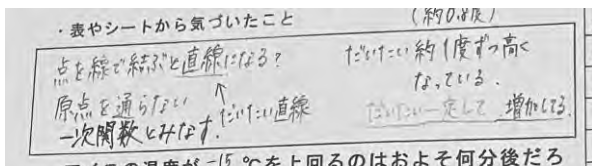 ・表やシートから気づいたこと
(約0.8度)
点を線で結ぶと直線になる?
原点を通らない
一次関数とみなす.
↑
だいたい直線
だいたい約1度ずつ高く
なっている.
だいたい一定して 増加してる.
アイスの温度が-15℃を上回るのはおよそ何分後だろ